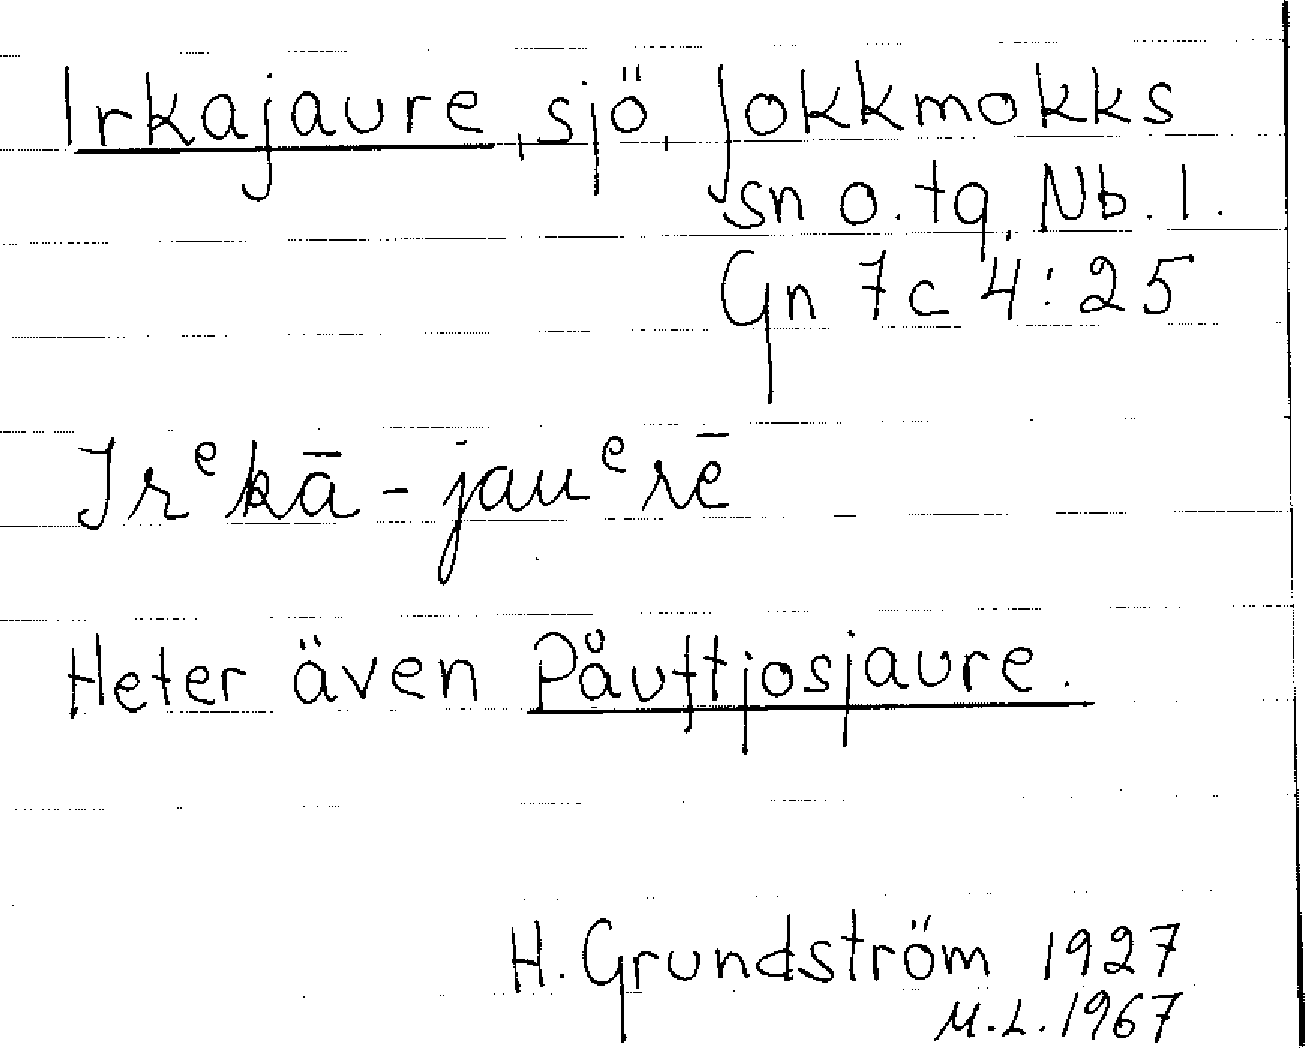 Irkajaure, sjö, Jokkmokks
sn o. tg, Nb. l.
Gn 7c 4:25
Irᵉkā-jauᵉrē
Heter även Påuttjosjaure.
H. Grundström 1927
M.L. 1967